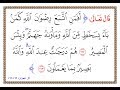 قَالَ تَعَالَى: ﴿ أَفَمَنِ اتَّبَعَ رِضْوَانَ اللَّهِ كَمَنْ
بَاءَ بِسَخَطٍ مِنَ اللَّهِ وَمَأْوَاهُ جَهَنَّمُ وَبِئْسَ
الْمَصِيرُ ۝ هُمْ دَرَجَاتٌ عِنْدَ اللَّهِ وَاللَّهُ
بَصِيرٌ بِمَا يَعْمَلُونَ ﴾